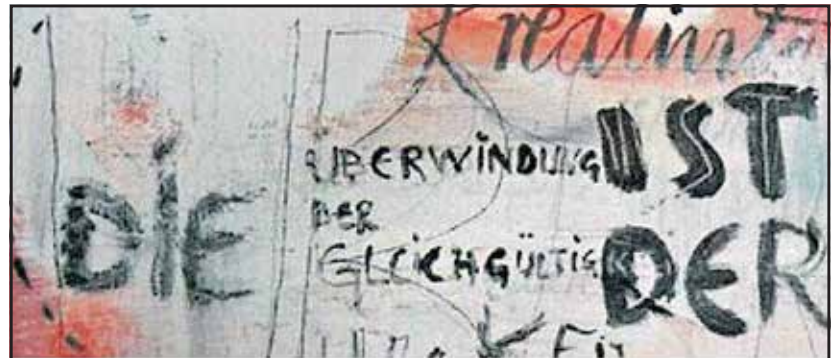 Kreativität
DIE
ÜBERWINDUNG
DER
GLEICHGÜLTIG
KEIT
IST
DER